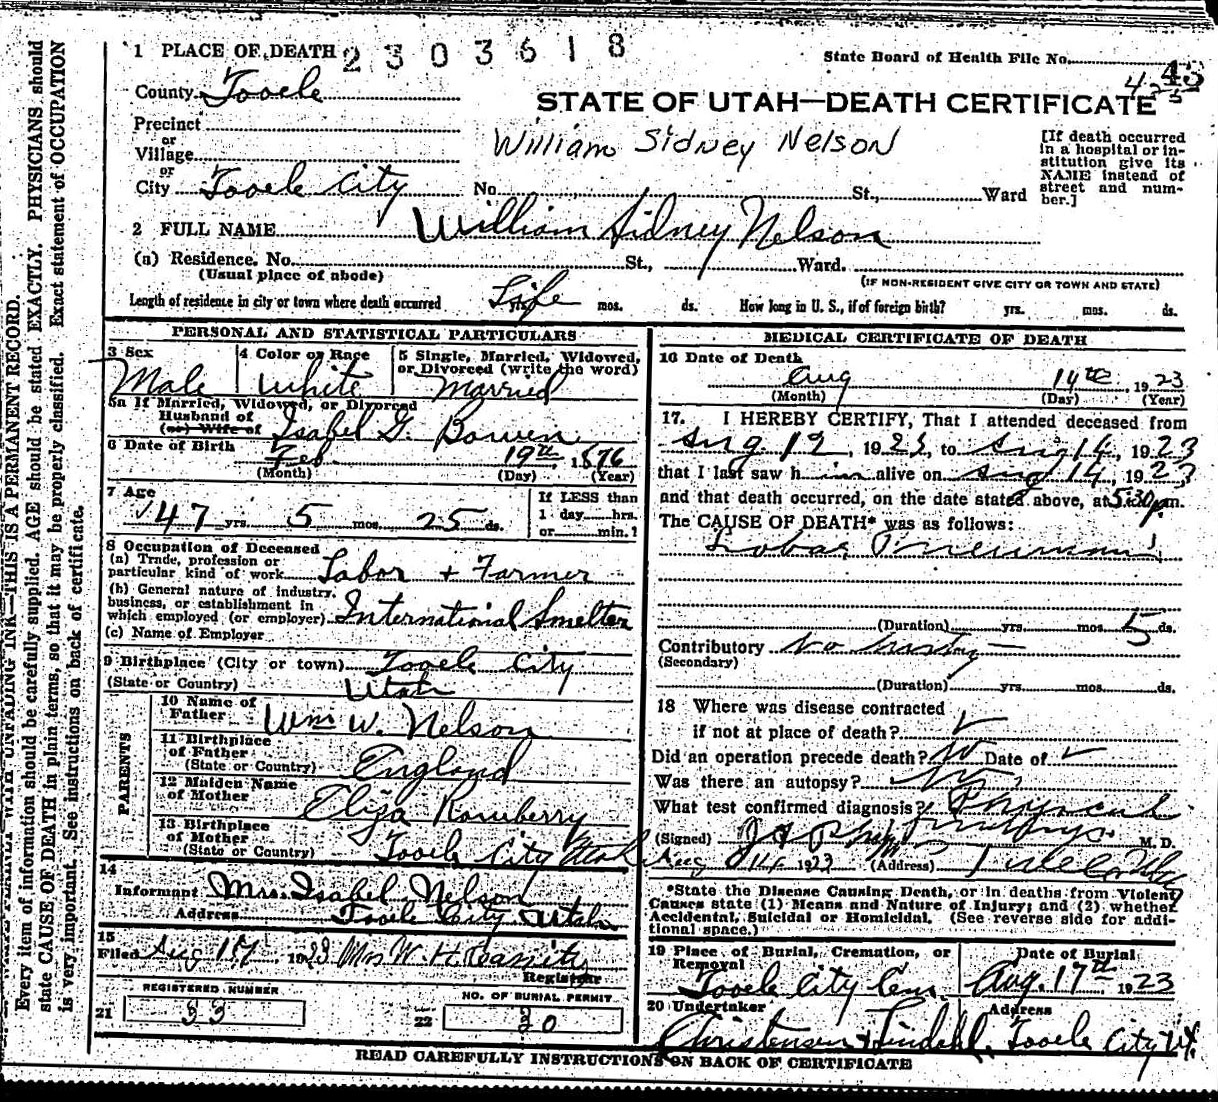 1 PLACE OF DEATH 2303618
State Board of Health File No. 43
County Tooele
STATE OF UTAH—DEATH CERTIFICATE
Precinct
or
Village
or
City Tooele City No. St., Ward
William Sidney Nelson
[If death occurred
in a hospital or in-
stitution give its
NAME instead of
street and num-
ber.]
2 FULL NAME William Sidney Nelson
(a) Residence. No. St., Ward.
(Usual place of abode) (IF NON-RESIDENT GIVE CITY OR TOWN AND STATE)
Length of residence in city or town where death occurred Life yrs. mos. ds. How long in U. S., if of foreign birth? yrs. mos. ds.
PERSONAL AND STATISTICAL PARTICULARS
3 Sex
Male
4 Color or Race
White
5 Single, Married, Widowed,
or Divorced (write the word)
Married
5a If Married, Widowed, or Divorced
Husband of
(or) Wife of Isabel G. Bowen
6 Date of Birth Feb. 19th, 1876
(Month) (Day) (Year)
7 Age
47 yrs. 5 mos. 25 ds.
If LESS than
1 day hrs.
or min.?
8 Occupation of Deceased
(a) Trade, profession or
particular kind of work Labor + Farmer
(b) General nature of industry,
business, or establishment in
which employed (or employer) International Smelter
(c) Name of Employer
9 Birthplace (City or town) Tooele City
(State or Country) Utah
PARENTS
10 Name of
Father Wm W. Nelson
11 Birthplace
of Father
(State or Country) England
12 Maiden Name
of Mother Eliza Rowberry
13 Birthplace
of Mother
(State or Country) Tooele City Utah
14
Informant Mrs. Isabel Nelson
Address Tooele City Utah
15
Filed Aug 1923 Mrs W. H.
Registrar
21 REGISTERED NUMBER
33
22 NO. OF BURIAL PERMIT
30
MEDICAL CERTIFICATE OF DEATH
16 Date of Death
Aug 14th, 1923
(Month) (Day) (Year)
17. I HEREBY CERTIFY, That I attended deceased from
Aug. 12, 1923, to Aug 14, 1923
that I last saw him alive on Aug 14, 1923
and that death occurred, on the date stated above, at 5:30 pm.
The CAUSE OF DEATH* was as follows:
Lobar Pneumonia
(Duration) yrs. mos. 5 ds.
Contributory
(Secondary)
(Duration) yrs. mos. ds.
18 Where was disease contracted
if not at place of death?
Did an operation precede death? No Date of
Was there an autopsy? No
What test confirmed diagnosis? Physical
(Signed) M. D.
Aug 14 1923 (Address)
*State the Disease Causing Death, or in deaths from Violent
Causes state (1) Means and Nature of Injury; and (2) whether
Accidental, Suicidal or Homicidal. (See reverse side for addi-
tional space.)
19 Place of Burial, Cremation, or
Removal
Tooele City Cem.
Date of Burial
Aug. 17th 1923
20 Undertaker Address
Christensen & Lindahl. Tooele City Ut.
READ CAREFULLY INSTRUCTIONS ON BACK OF CERTIFICATE
UNFADING INK—THIS IS A PERMANENT RECORD.
Every item of information should be carefully supplied. AGE should be stated EXACTLY. PHYSICIANS should
state CAUSE OF DEATH in plain terms, so that it may be properly classified. Exact statement of OCCUPATION
is very important. See instructions on back of certificate.